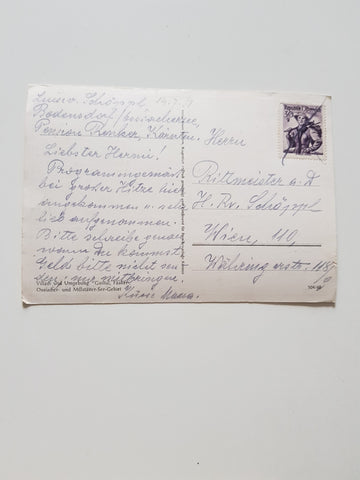 Schöppl, 14.7.
Bodensdorf/
Pension Ronker, Kärnten.
Liebster Hermi!
Programmgemäß
bei großer Hitze hier
angekommen u. sehr
lieb aufgenommen.
Bitte schreibe genau
wann du kommst.
Geld bitte nicht sen-
den, nur mitbringen.
Küsse Mama.
Herrn
Rittmeister a. D
H. Rv. Schöppl
Wien, 110,
Währingerstr.
Villach und Umgebung
Ossiacher- und Millstätter-See-Gebiet
Republik Österreich